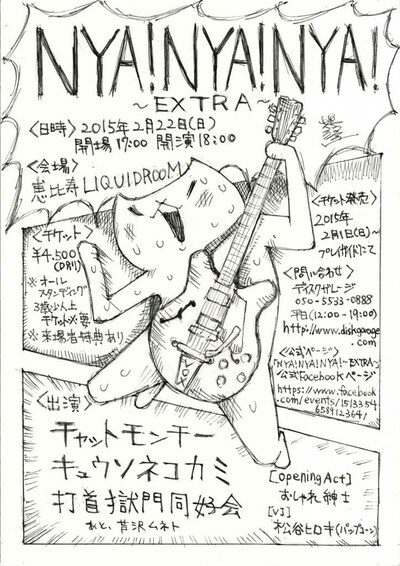 NYA!NYA!NYA!
~EXTRA~
〈日時〉2015年2月22日(日)
開場17:00 開演18:00
〈会場〉
恵比寿LIQUIDROOM
〈チケット〉
¥4,500
(D別)
※オール
スタンディング
3歳以上
チケット必要
※来場者特典あり
〈チケット発売〉
2015年
2月1日(日)~
プレイガイドにて
〈問い合わせ〉
ディスクガレージ
050-5533-0888
平日(12:00-19:00)
http://www.diskgarage
.com
〈公式ページ〉
「NYA!NYA!NYA!~EXTRA~」
公式Facebookページ
https://www.facebook
.com/events/1513354
658912364/
〈出演〉
チャットモンチー
キュウソネコカミ
打首獄門同好会
あと、芦沢ムネト
[Opening Act]
おしゃれ紳士
[VJ]
松谷ヒロキ(パップコーン)